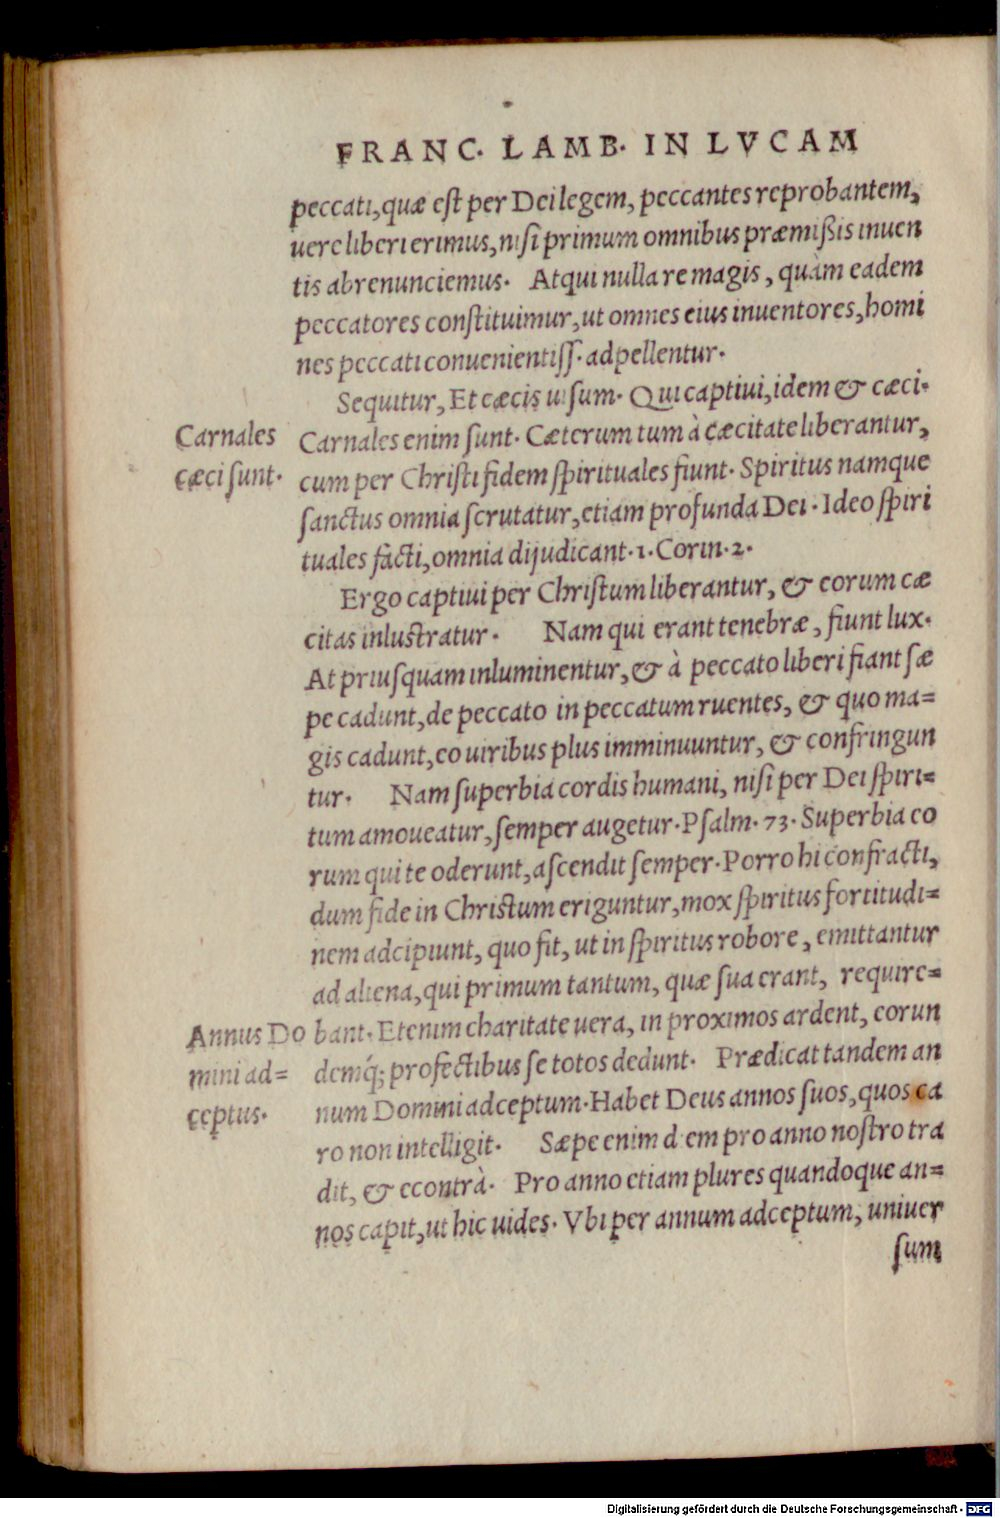 FRANC. LAMB. IN LVCAM
peccati, quæ est per Dei legem, peccantes reprobantem,
uere liberi erimus, nisi primum omnibus præmißis inuen
tis abrenunciemus. Atqui nulla re magis, quàm eadem
peccatores constituimur, ut omnes eius inuentores, homi
nes peccati conuenientiss. adpellentur.
Sequitur, Et cæcis uisum. Qui captiui, idem & cæci.
Carnales
Carnales enim sunt. Cæterum tum à cæcitate liberantur,
cæci sunt.
cum per Christi fidem spirituales fiunt. Spiritus namque
sanctus omnia scrutatur, etiam profunda Dei. Ideo spiri
tuales facti, omnia dijudicant. 1. Corin. 2.
Ergo captiui per Christum liberantur, & eorum cæ
citas inlustratur. Nam qui erant tenebræ, fiunt lux.
At priusquam inluminentur, & à peccato liberi fiant sæ
pe cadunt, de peccato in peccatum ruentes, & quo ma=
gis cadunt, eo uiribus plus imminuuntur, & confringun
tur. Nam superbia cordis humani, nisi per Dei spiri=
tum amoueatur, semper augetur. Psalm. 73. Superbia eo
rum qui te oderunt, ascendit semper. Porro hi confracti,
dum fide in Christum eriguntur, mox spiritus fortitudi=
nem adcipiunt, quo fit, ut in spiritus robore, emittantur
ad aliena, qui primum tantum, quæ sua erant, require=
Annus Do
bant. Etenim charitate uera, in proximos ardent, eorun
mini ad=
demq́; profectibus se totos dedunt. Prædicat tandem an
ceptus.
num Domini adceptum. Habet Deus annos suos, quos ca
ro non intelligit. Sæpe enim diem pro anno nostro tra
dit, & econtrà. Pro anno etiam plures quandoque an=
nos capit, ut hic uides. Vbi per annum adceptum, uniuer
sum
Digitalisierung gefördert durch die Deutsche Forschungsgemeinschaft - DFG